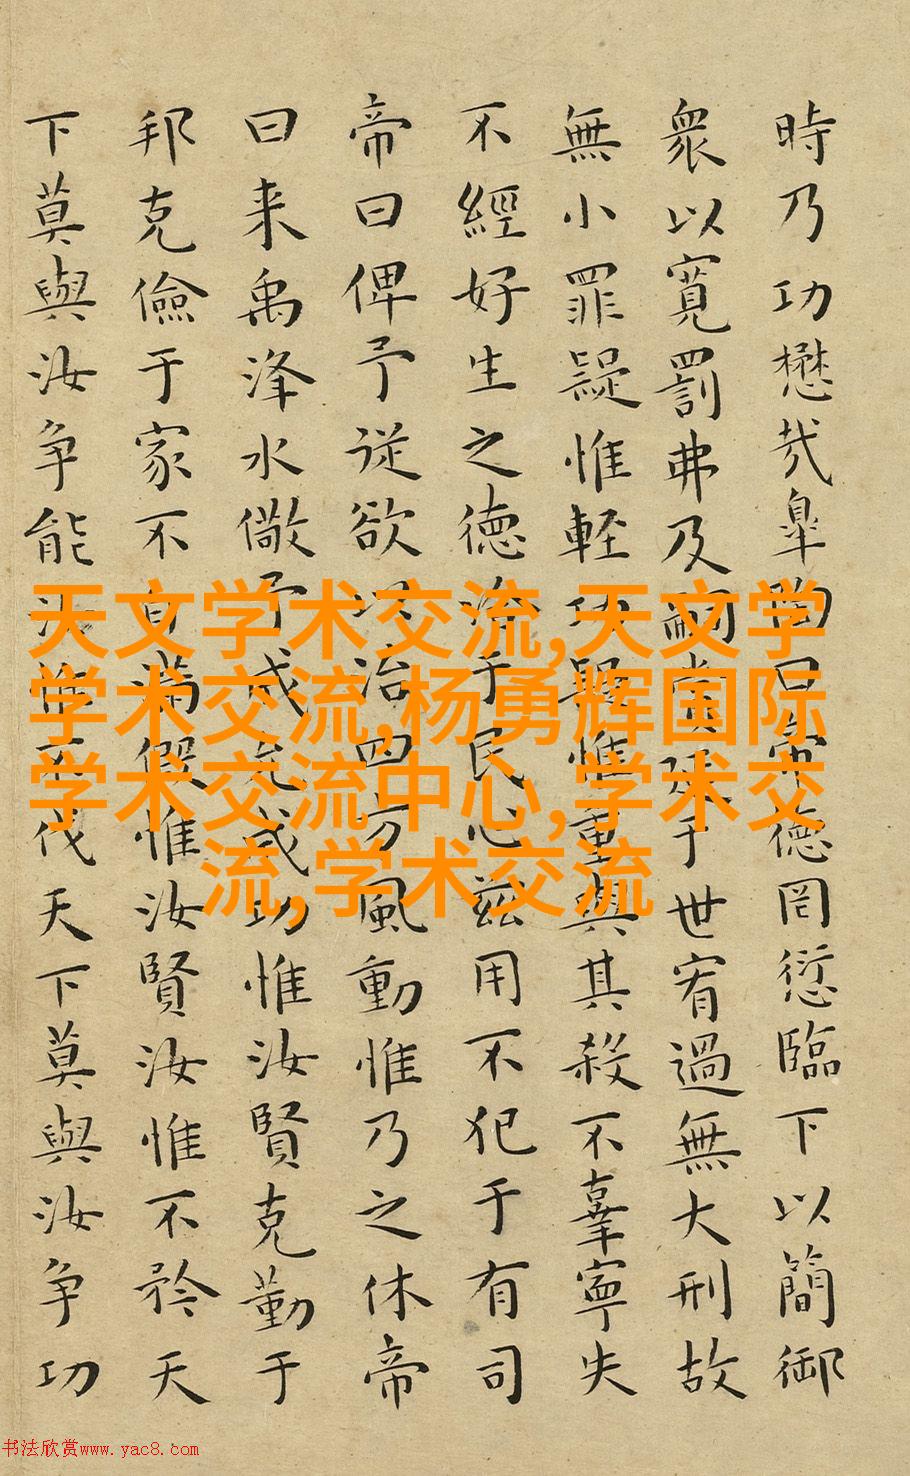 時乃功懋哉皐陶曰帝德罔愆臨下以簡御
衆以寬罰弗及嗣賞延于世宥過無大刑故
無小罪疑惟輕功疑惟重與其殺不辜寧失
不經好生之德洽于民心茲用不犯于有司
帝曰俾予從欲以治四方風動惟乃之休帝
曰来禹洚水儆予成允成功惟汝賢克勤于
邦克儉于家不自滿假惟汝賢汝惟不矜天
下莫與汝争能汝惟不伐天下莫與汝争功
天文学术交流,天文学
学术交流,杨勇辉国际
学术交流中心,学术交
流,学术交流
书法欣赏www.yac8.com